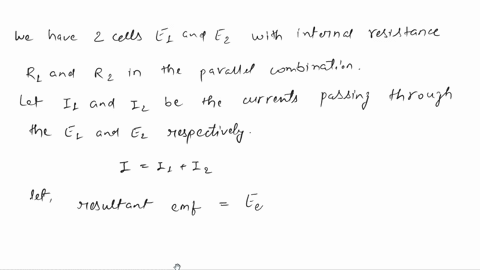 We have 2 cells E1 and E2 with internal resistance
R1 and R2 in the parallel combination.
Let I1 and I2 be the currents passing through
the E1 and E2 respectively.
I = I1 + I2
let, resultant emf = Ee